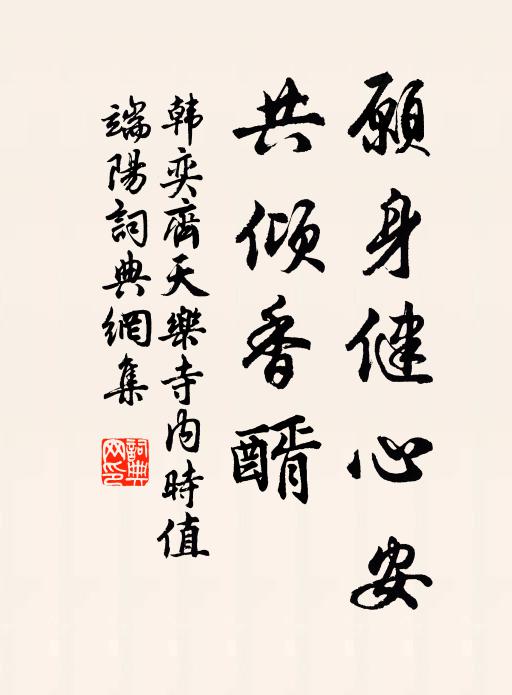 願身健心安
共傾香醑
韩奕齊天樂寺内時值
端陽詞典網集
詞典網印